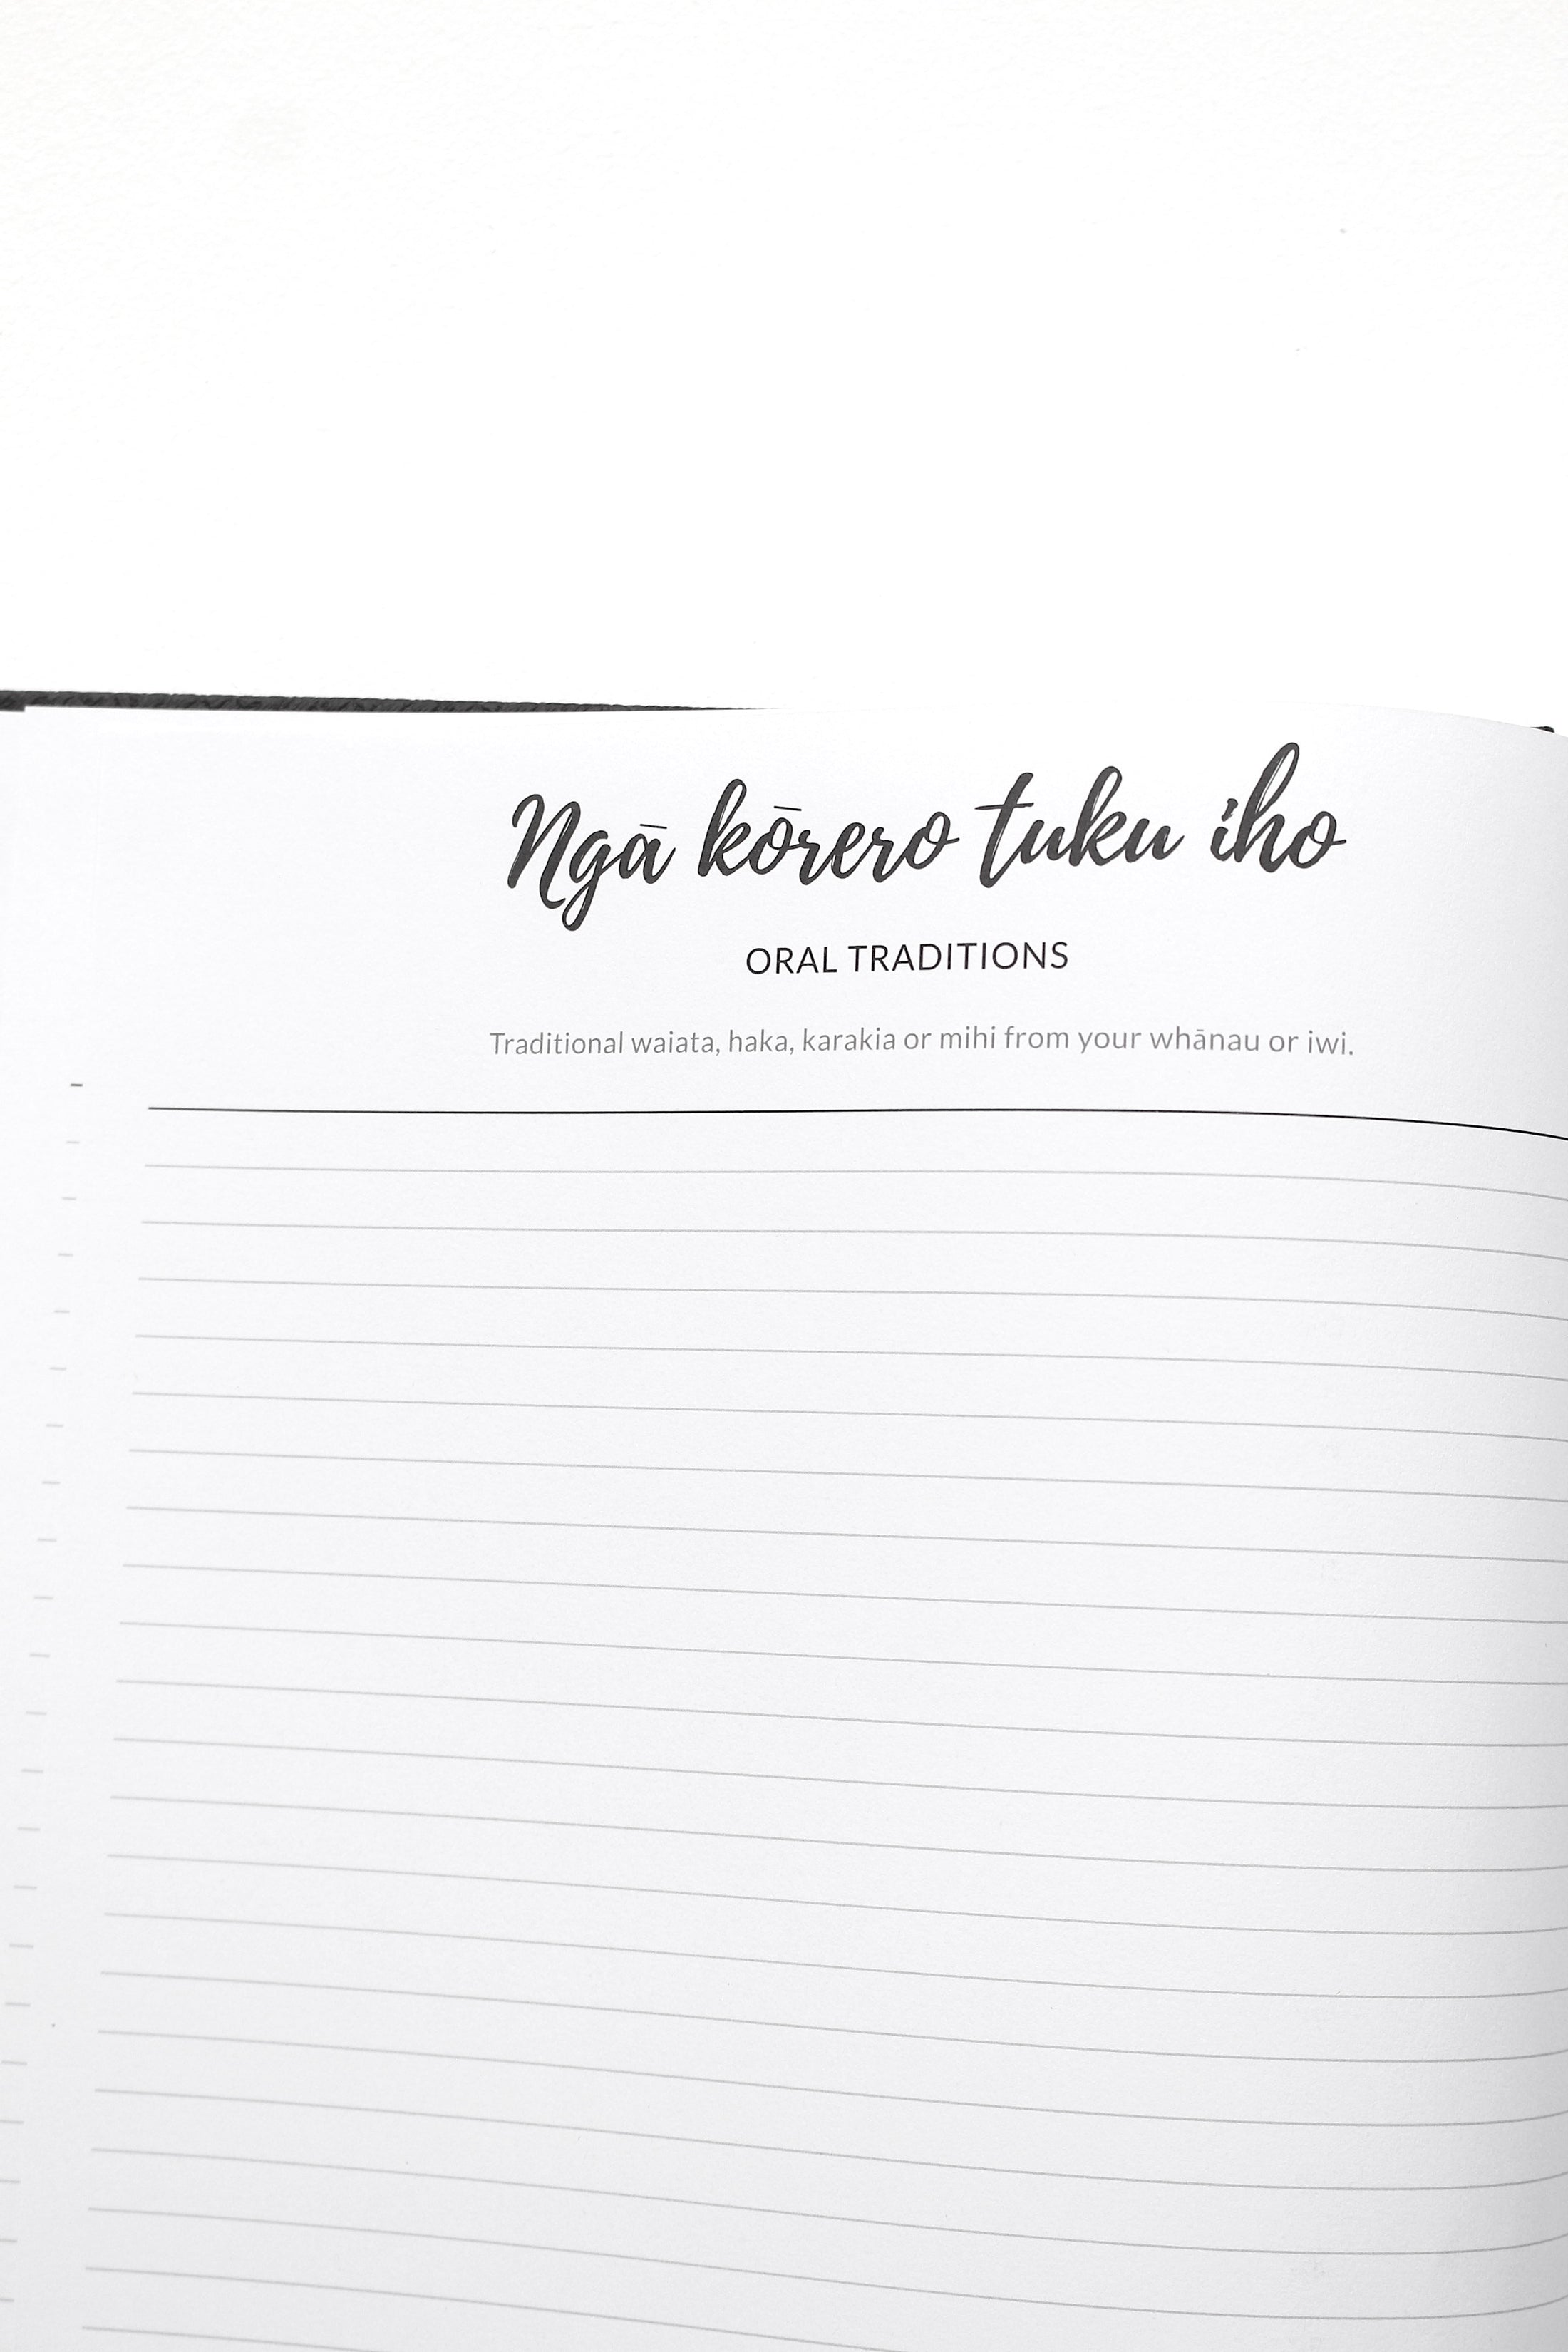 Ngā kōrero tuku iho
ORAL TRADITIONS
Traditional waiata, haka, karakia or mihi from your whānau or iwi.